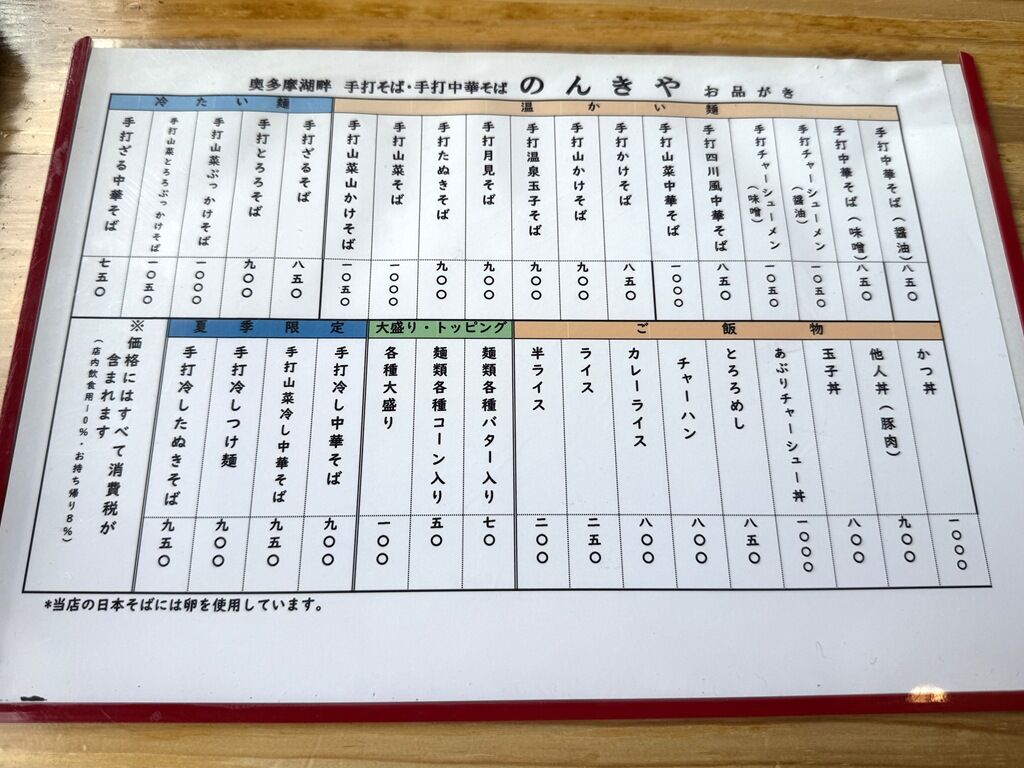 奥多摩湖畔 手打そば・手打中華そば のんきや お品がき
温かい麺
手打中華そば(醤油) 八五〇
手打中華そば(味噌) 八五〇
手打チャーシューメン(醤油) 一〇五〇
手打チャーシューメン(味噌) 一〇五〇
手打四川風中華そば 八五〇
手打山菜中華そば 一〇〇〇
手打かけそば 八五〇
手打山かけそば 九〇〇
手打温泉玉子そば 九〇〇
手打月見そば 九〇〇
手打たぬきそば 九〇〇
手打山菜そば 一〇〇〇
手打山菜山かけそば 一〇五〇
冷たい麺
手打ざるそば 八五〇
手打とろろそば 九〇〇
手打山菜ぶっかけそば 一〇〇〇
手打山菜とろろぶっかけそば 一〇五〇
手打ざる中華そば 七五〇
ご飯物
かつ丼 一〇〇〇
他人丼(豚肉) 九〇〇
玉子丼 八〇〇
あぶりチャーシュー丼 一〇〇〇
とろろめし 八五〇
チャーハン 八〇〇
カレーライス 八〇〇
ライス 二五〇
半ライス 二〇〇
大盛り・トッピング
麺類各種バター入り 七〇
麺類各種コーン入り 五〇
各種大盛り 一〇〇
夏季限定
手打冷し中華そば 九〇〇
手打山菜冷し中華そば 九五〇
手打冷しつけ麺 九〇〇
手打冷したぬきそば 九五〇
※価格にはすべて消費税が
含まれます
(店内飲食用10%・お持ち帰り8%)
*当店の日本そばには卵を使用しています。